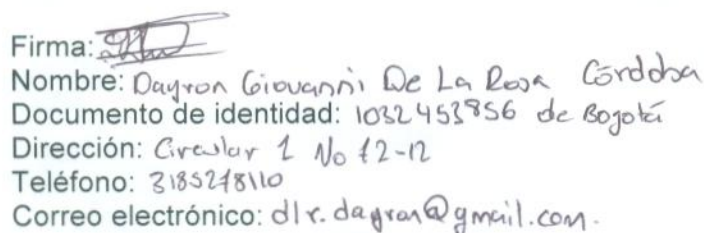 Firma:
Nombre: Dayron Giovanni De La Rosa Córdoba
Documento de identidad: 1032453856 de Bogotá
Dirección: Circular 1 No 72-12
Teléfono: 3185278110
Correo electrónico: dlr.dayron@gmail.com.